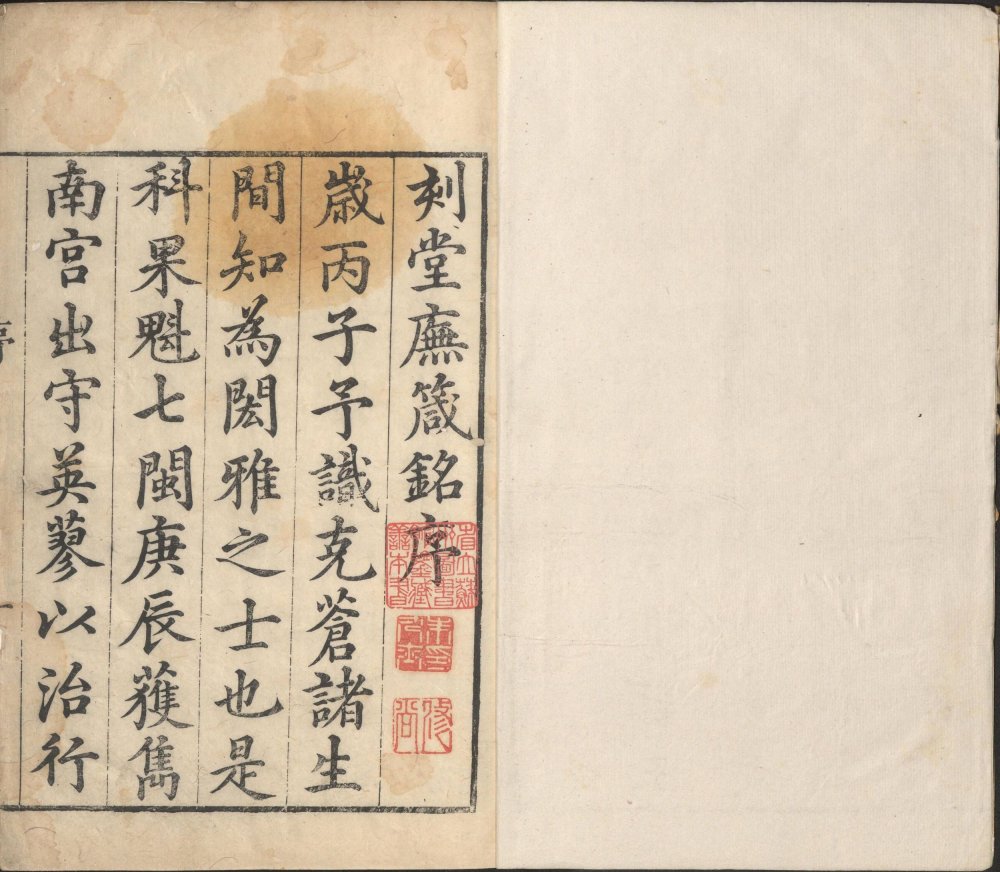 刻堂廡箴銘序
歲丙子予識克蒼諸生
間知為閎雅之士也是
科果魁七閩庚辰獲雋
南宮出守英蓼以治行
序
一